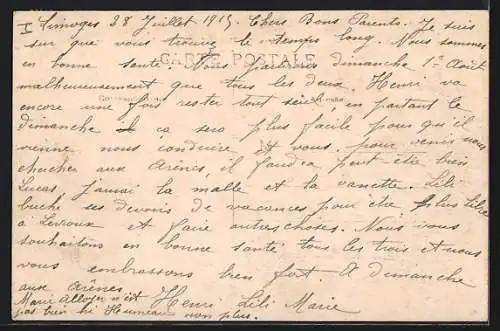 I Limoges 28 Juillet 1915. Chers Bons Parents. Je suis
sur que vous trouvez le temps long. Nous sommes
en bonne santé. Nous partirons dimanche 1er Août
CARTE POSTALE
malheureusement que tous les deux. Henri va
encore une fois rester tout seul, en partant le
dimanche ça sera plus facile pour qu'il
vienne nous conduire. Et vous pour venir nous
chercher aux Arènes, il faudra peut-être bien
Lucas, j'aurai la malle et la vanette. Lili
buche ses devoirs de vacances pour être plus libre
à Levroux et faire autres choses. Nous vous
souhaitons en bonne santé tous les trois et nous
vous embrassons bien fort. A dimanche
aux Arènes. Henri Lili Marie
Marie n'est
pas bien ni non plus.